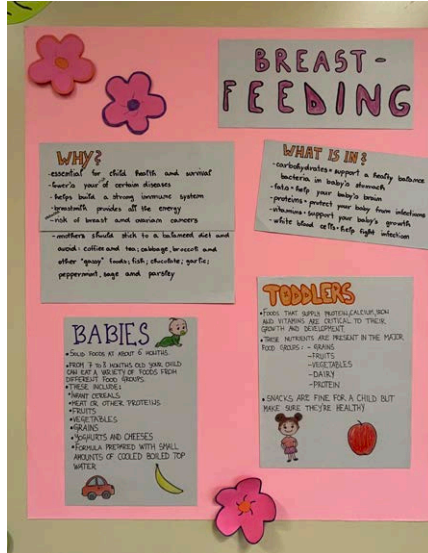 BREAST-
FEEDING
WHY?
-essential for child health and survival
-lowers your of certain diseases
-helps build a strong immune system
-breastmilk provides all the energy
-risk of breast and ovarian cancers
-mothers should stick to a balanced diet and
avoid: coffee and tea; cabbage, broccoli and
other "gassy" foods; fish; chocolate; garlic;
peppermint, sage and parsley
WHAT IS IN?
-carbohydrates • support a healty balance
bacteria in baby's stomach
-fats • help your baby's brain
-proteins • protect your baby from infections
-vitamins • support your baby's growth
-white blood cells • help fight infection
BABIES
•SOLID FOODS AT ABOUT 6 MONTHS.
•FROM 7 TO 8 MONTHS OLD YOUR CHILD
CAN EAT A VARIETY OF FOODS FROM
DIFFERENT FOOD GROUPS.
•THESE INCLUDE:
•INFANT CEREALS
•MEAT OR OTHER PROTEINS
•FRUITS
•VEGETABLES
•GRAINS
•YOGHURTS AND CHEESES
•FORMULA PREPARED WITH SMALL
AMOUNTS OF COOLED BOILED TOP
WATER
TODDLERS
•FOODS THAT SUPPLY PROTEIN, CALCIUM, IRON
AND VITAMINS ARE CRITICAL TO THEIR
GROWTH AND DEVELOPMENT.
•THESE NUTRIENTS ARE PRESENT IN THE MAJOR
FOOD GROUPS: - GRAINS
-FRUITS
-VEGETABLES
-DAIRY
-PROTEIN
•SNACKS ARE FINE FOR A CHILD BUT
MAKE SURE THEY'RE HEALTHY